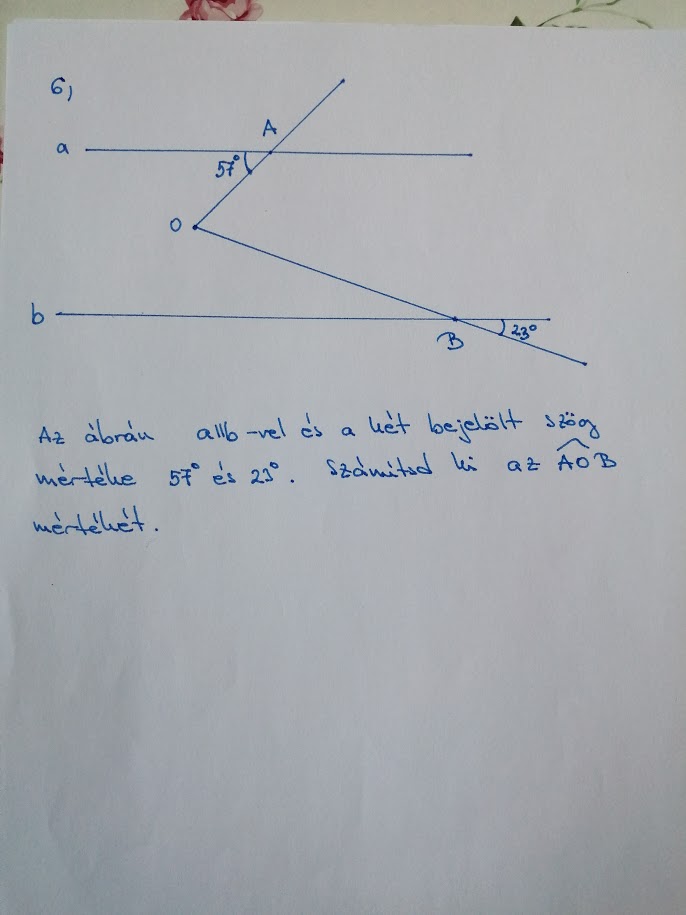 6,
A
a
57°
O
b
23°
B
Az ábrán a||b-vel és a két bejelölt szög
mértéke 57° és 23°. Számítsd ki az AOB
mértékét.